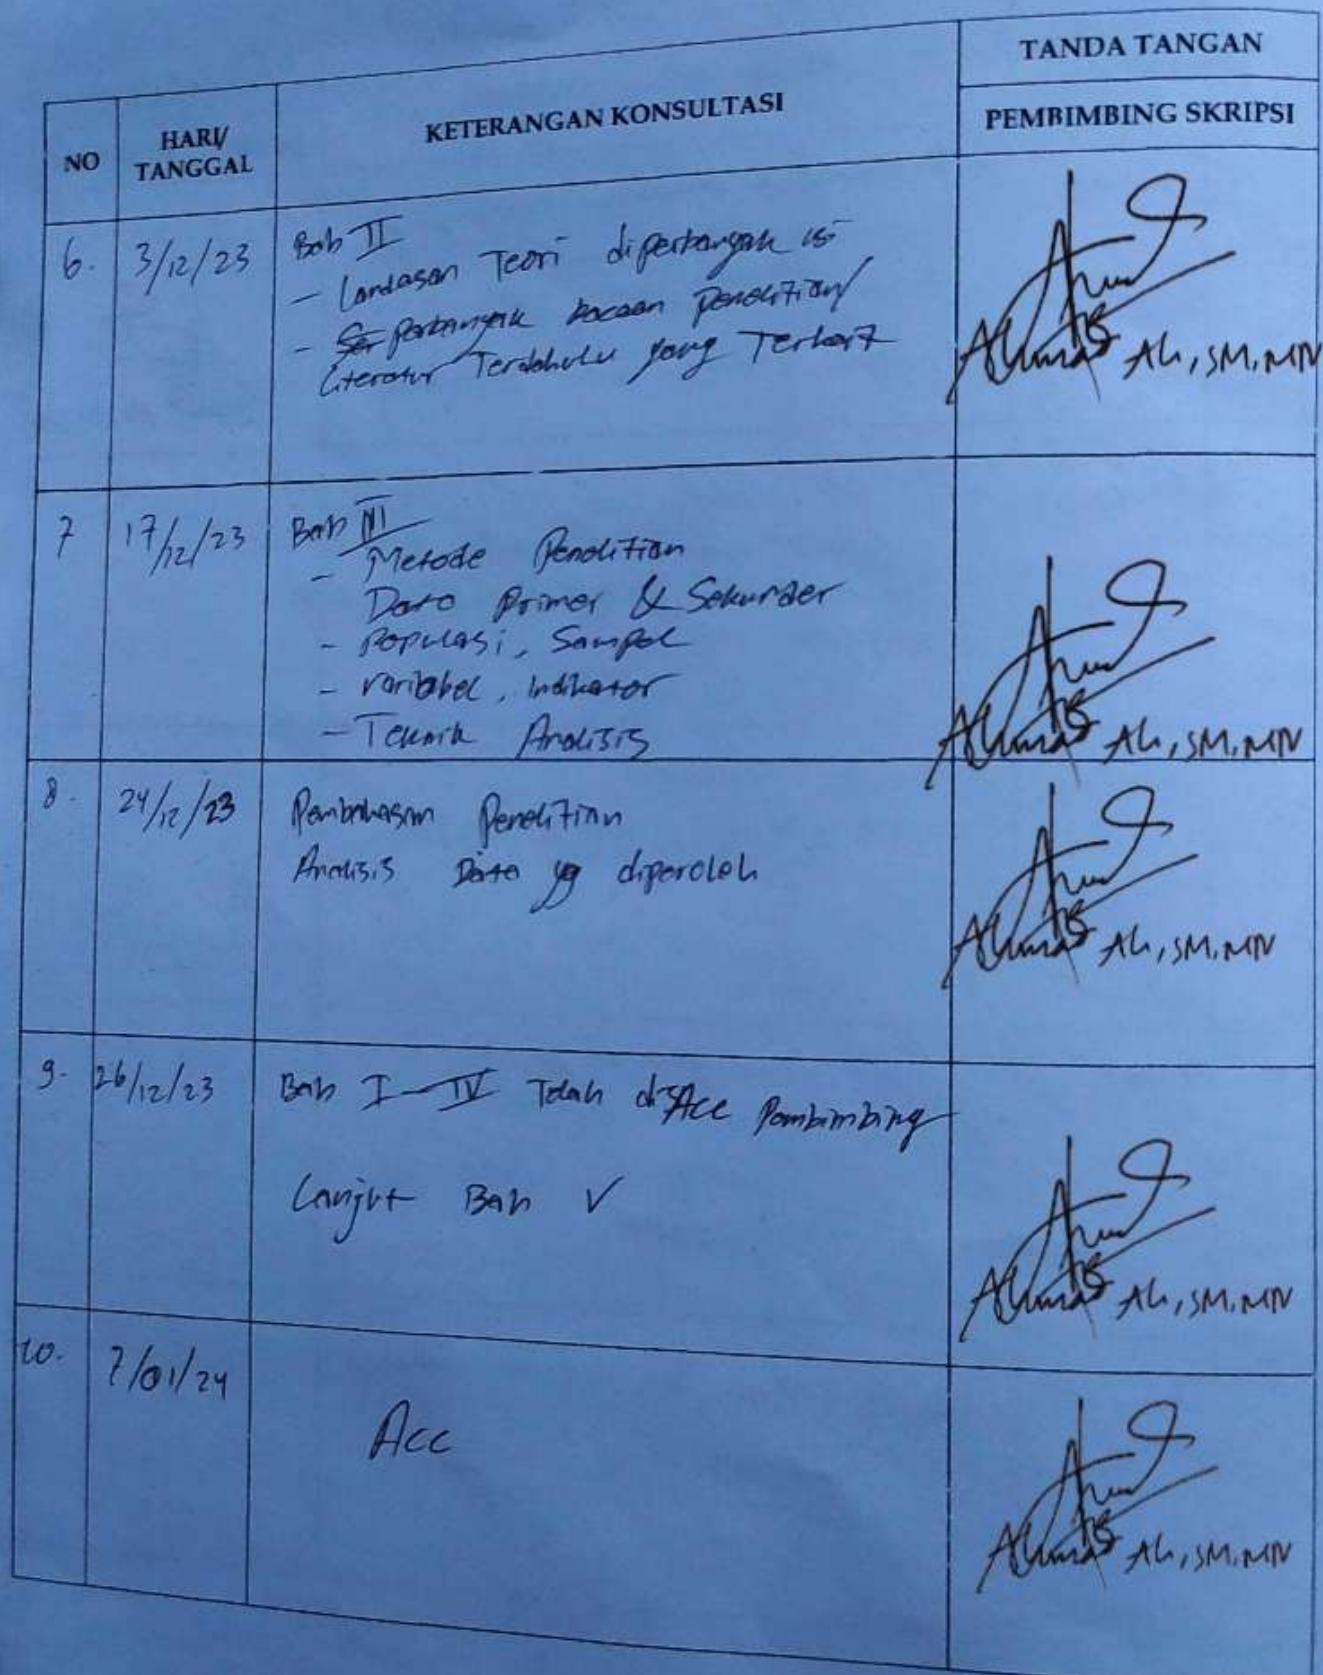 TANDA TANGAN
NO
HARI/
TANGGAL
KETERANGAN KONSULTASI
PEMBIMBING SKRIPSI
6.
3/12/23
Bab II
- Landasan Teori diperbanyak isi
- perbanyak bacaan Penelitian/
Literatur Terdahulu yang Terkait
Ahmad Ali, SM, MM
7
17/12/23
Bab III
- Metode Penelitian
Data Primer & Sekunder
- Populasi, Sampel
- variabel, Indikator
- Teknik Analisis
Ahmad Ali, SM, MM
8.
24/12/23
Pembahasan Penelitian
Analisis Data yg diperoleh
Ahmad Ali, SM, MM
9.
26/12/23
Bab I - IV Telah di Acc Pembimbing
Lanjut Bab V
Ahmad Ali, SM, MM
10.
7/01/24
Acc
Ahmad Ali, SM, MM